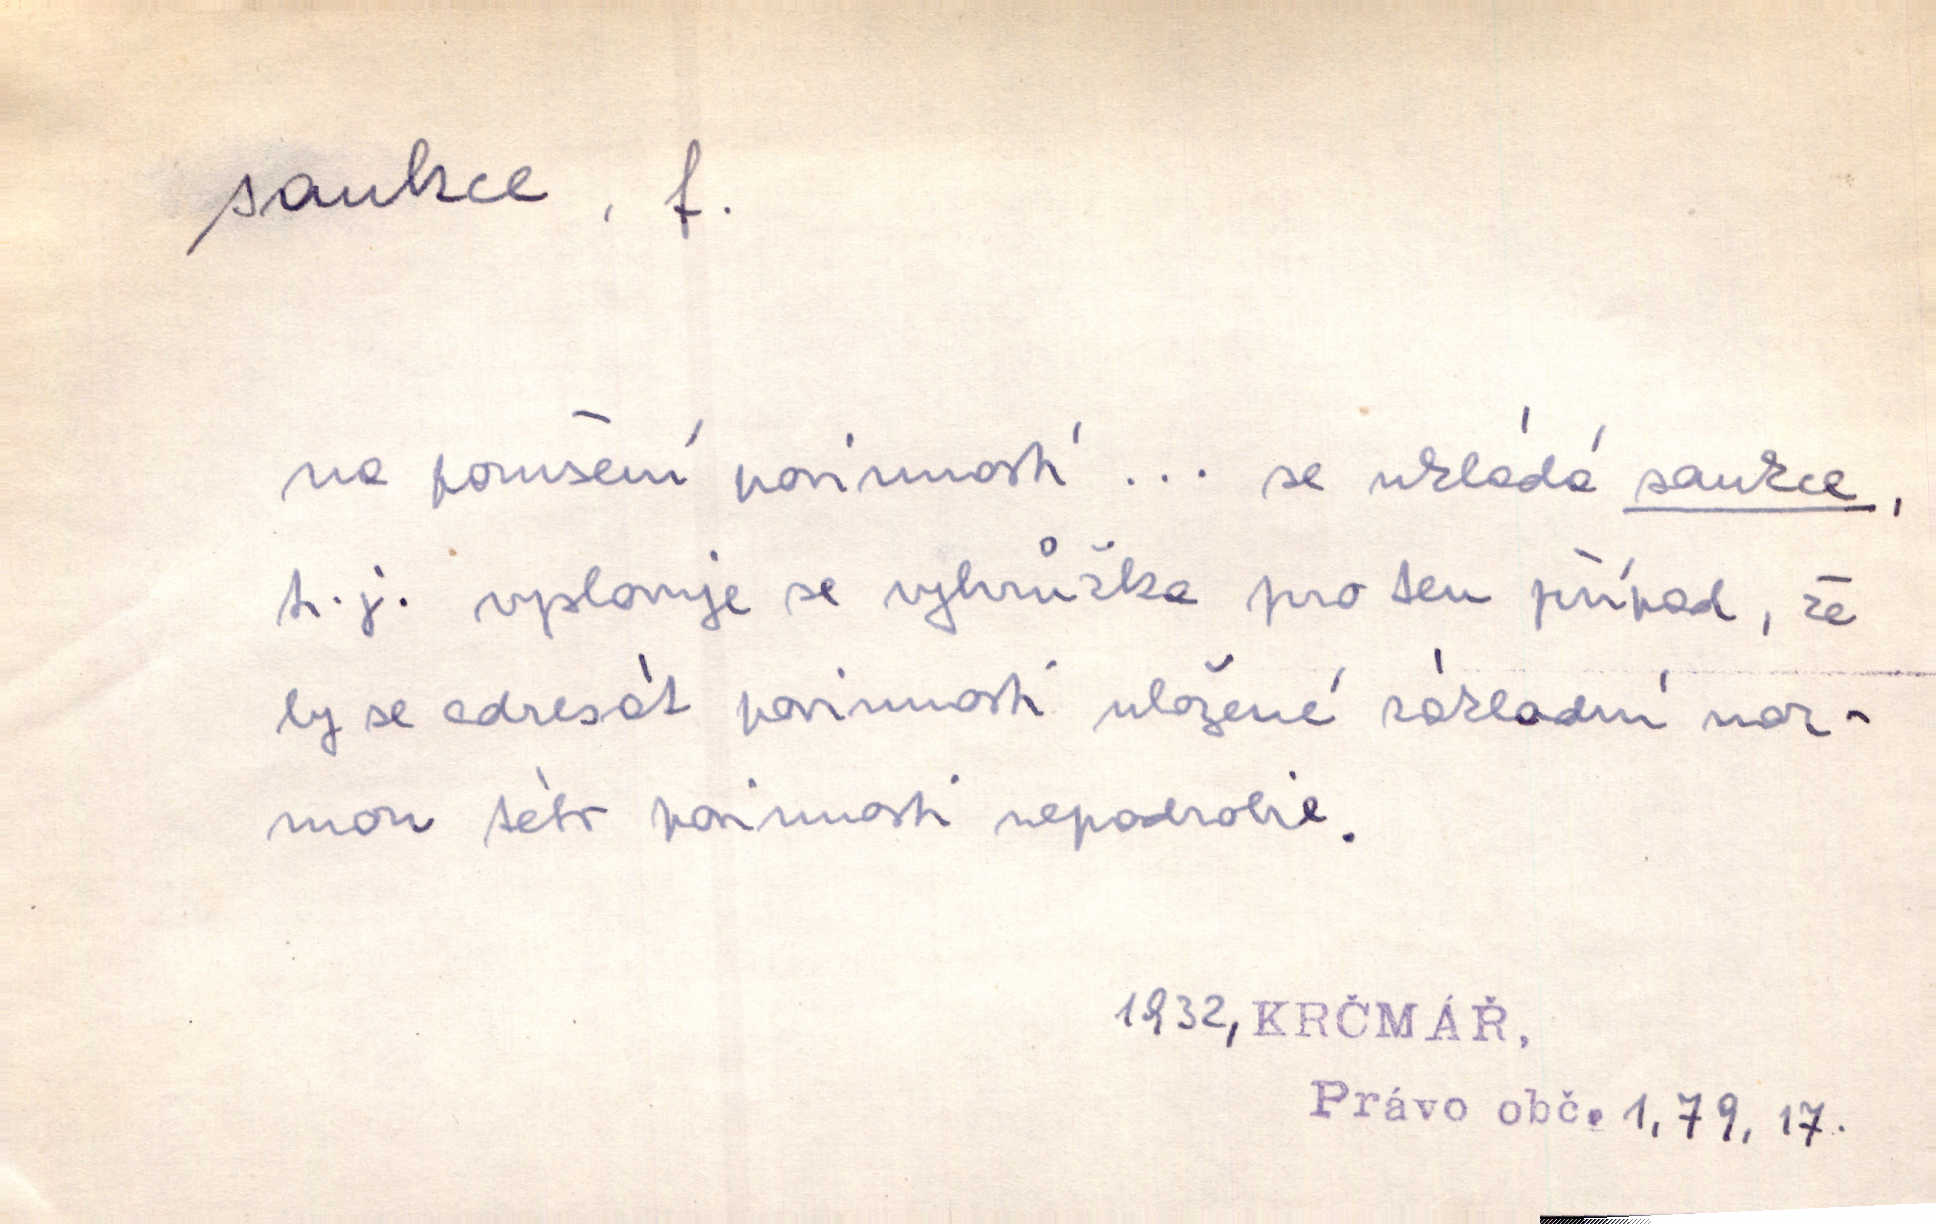 sankce, f.
na porušení povinností ... se ukládá sankce,
t. j. vyslovuje se vyhrůžka pro ten případ, že
by se adresát povinnosti uložené základní nor-
mou této povinnosti nepodrobil.
1932, KRČMÁŘ,
Právo obč. 1, 79, 17.